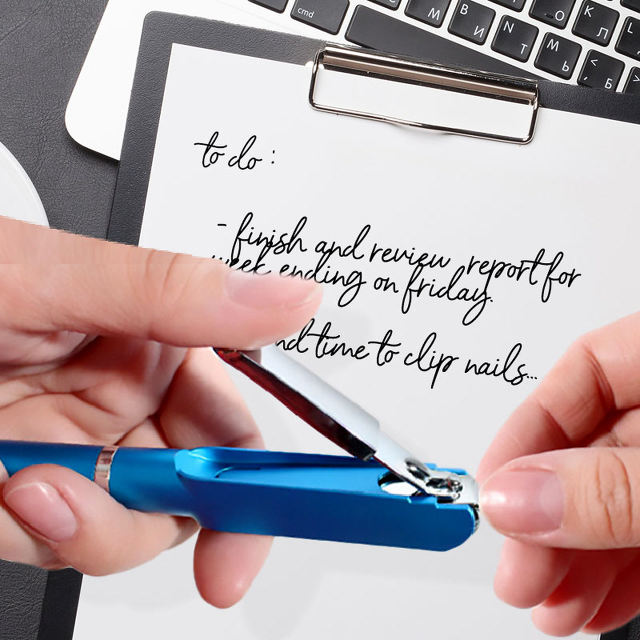 cmd
to do :
- finish and review report for
week ending on friday.
time to clip nails...